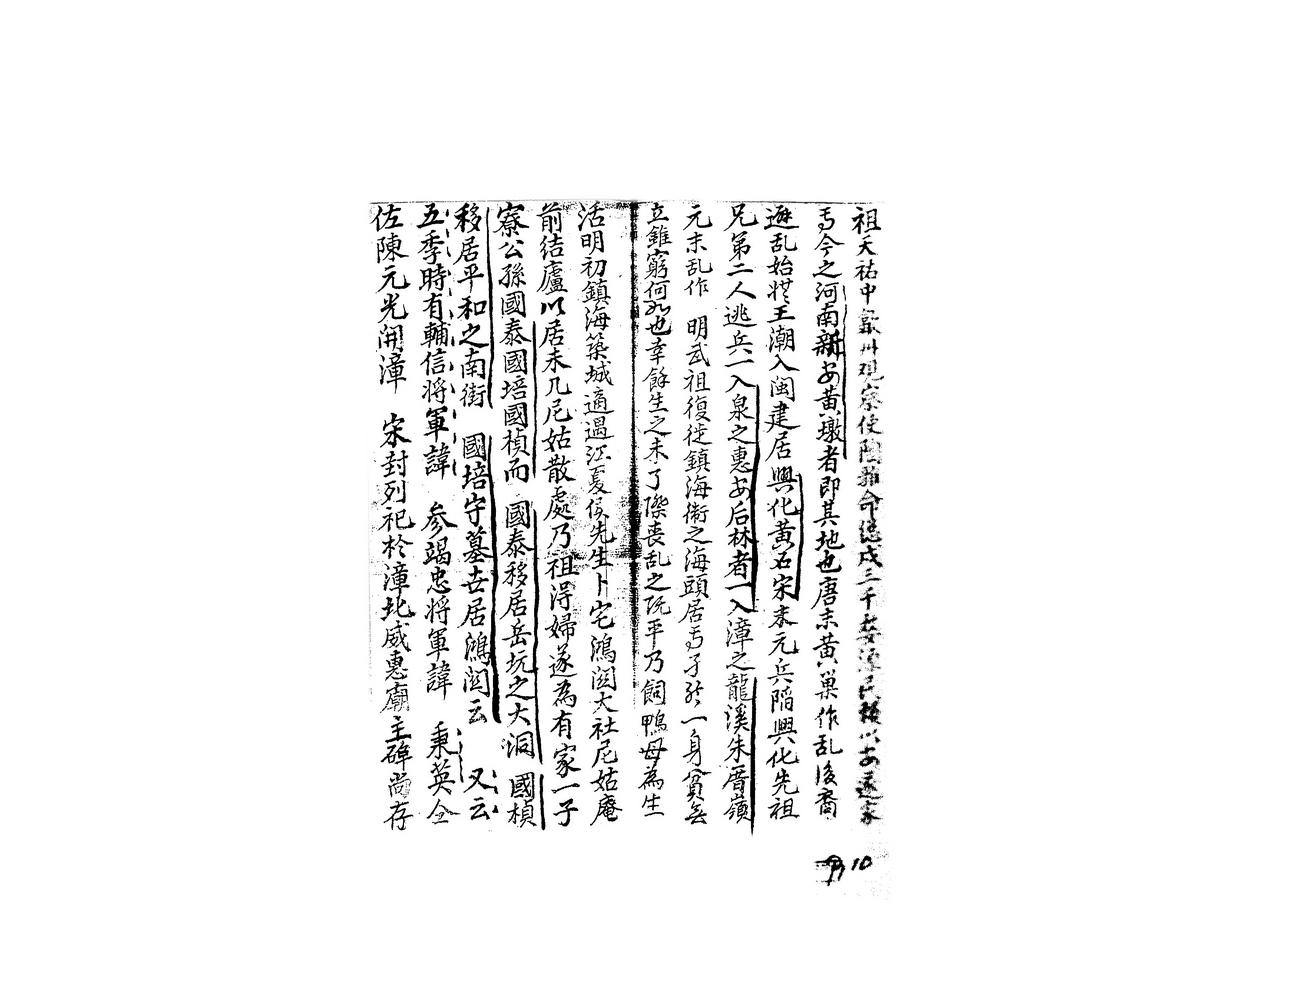 祖天祐中歙州观察使陶雅命总戍三千婺源民赖以安遂家
焉今之河南新安黄墩者即其地也唐末黄巢作乱後裔
避乱始從王潮入闽建居興化黄石宋末元兵陷興化先祖
兄第二人逃兵一入泉之惠安后林者一入漳之龍溪朱厝嶺
元末乱作 明武祖復徙鎮海衛之海頭居焉孑然一身貧無
立錐窮何如也幸餘生之未了際喪乱之既平乃飼鴨母為生
活明初鎮海築城適遇江夏侯先生卜宅鴻𨳝大社尼姑庵
前结廬以居未几尼姑散處乃祖淂婦遂為有家一子
寮公孫國泰國培國楨而 國泰移居岳坑之大洞 國楨
移居平和之南街 國培守墓世居鴻𨳝云 又云
五季時有輔信将軍諱 参竭忠将軍諱 秉英仝
佐陳元光開漳 宋封列祀於漳北威惠廟主碑尚存
P 10